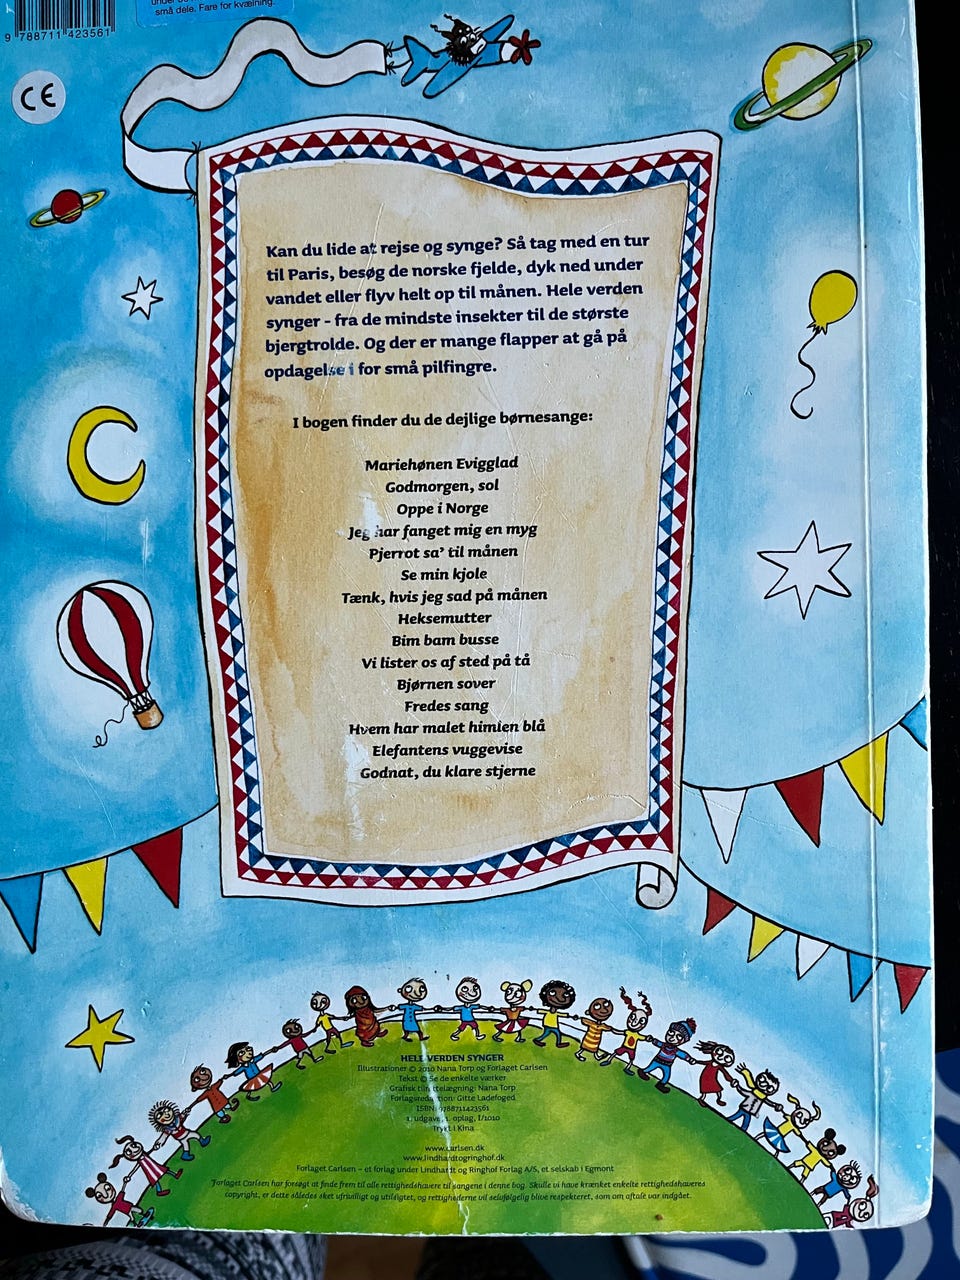 små dele. Fare for kvælning.
9 788711 423561
CE
Kan du lide at rejse og synge? Så tag med en tur
til Paris, besøg de norske fjelde, dyk ned under
vandet eller flyv helt op til månen. Hele verden
synger - fra de mindste insekter til de største
bjergtrolde. Og der er mange flapper at gå på
opdagelse i for små pilfingre.
I bogen finder du de dejlige børnesange:
Mariehønen Evigglad
Godmorgen, sol
Oppe i Norge
Jeg har fanget mig en myg
Pjerrot sa' til månen
Se min kjole
Tænk, hvis jeg sad på månen
Heksemutter
Bim bam busse
Vi lister os af sted på tå
Bjørnen sover
Fredes sang
Hvem har malet himlen blå
Elefantens vuggevise
Godnat, du klare stjerne
HELE VERDEN SYNGER
Illustrationer © 2010 Nana Torp og Forlaget Carlsen
Tekst © Se de enkelte værker
Grafisk tilrettelægning: Nana Torp
Forlagsredaktion: Gitte Ladefoged
ISBN: 9788711423561
1. udgave, 1. oplag, 1/2010
Trykt i Kina
www.carlsen.dk
www.lindhardtogringhof.dk
Forlaget Carlsen – et forlag under Lindhardt og Ringhof Forlag A/S, et selskab i Egmont
Forlaget Carlsen har forsøgt at finde frem til alle rettighedshavere til sangene i denne bog. Skulle vi have krænket enkelte rettighedshaveres
copyright, er dette således sket ufrivilligt og utilsigtet, og rettighederne vil selvfølgelig blive respekteret, som om aftale var indgået.